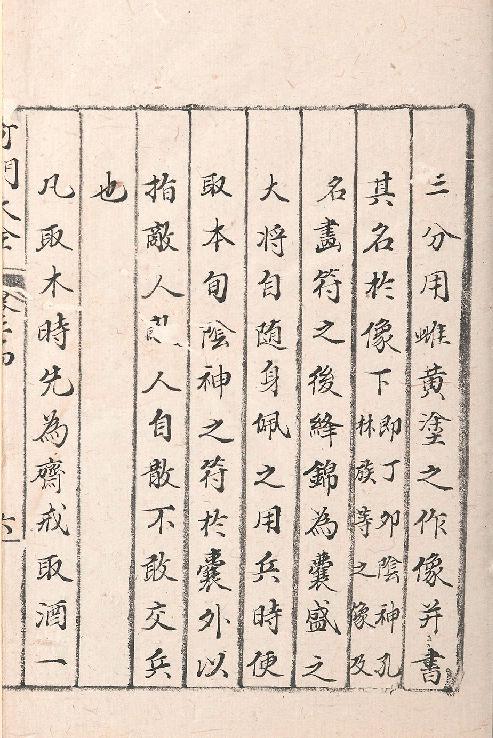 三分用雌黃塗之作像并書
其名於像下
即丁卯陰神孔
林族等之像及
名畫符之後絳錦為囊盛之
大將自随身佩之用兵時便
取本旬陰神之符於囊外以
指敵人人自散不敢交兵
也
凡取木時先為齋戒取酒一